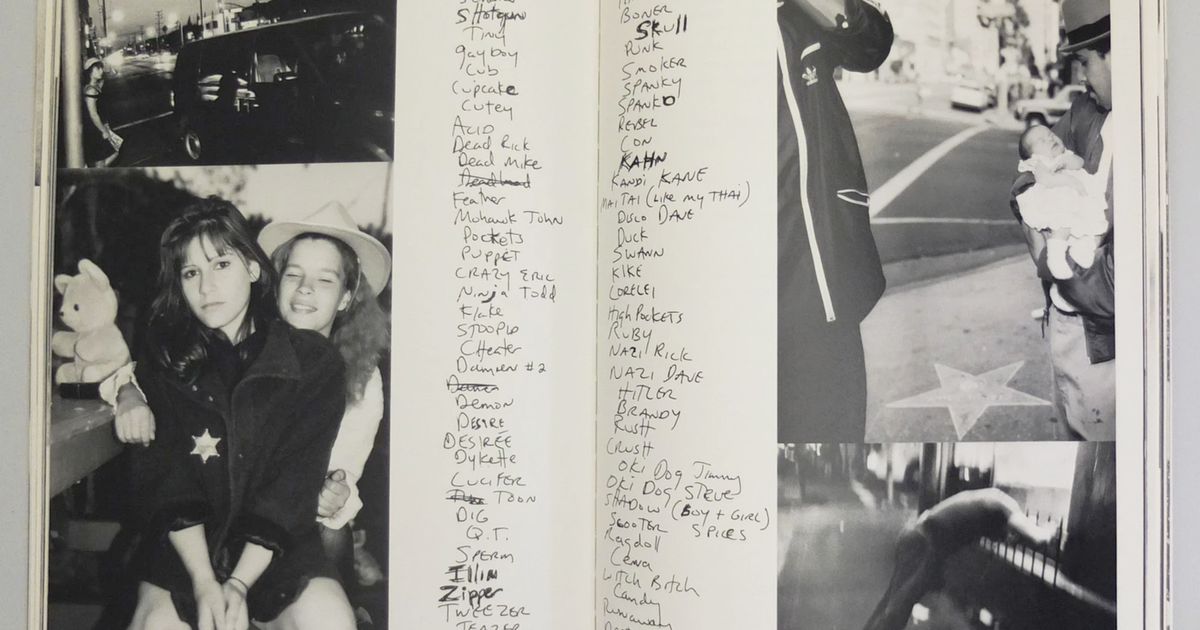 Shotgun
Tiny
gayboy
Cub
Cupcake
Cutey
ACID
Dead Rick
Dead Mike
Feather
Mohawk John
Pockets
PUPPET
CRAZY ERIC
Ninja Todd
Flake
STOOPID
CHeater
Damien #2
Demon
DESIRE
DESIRÉE
Dykette
LUCIFER
TOON
DIG
Q.T.
SPERM
Illin
Zipper
TWEEZER
TEAZER
BONER
SKUll
PUNK
SMOKER
SPANKY
SPANKO
REBEL
CON
KAHN
KANDI KANE
MAI TAI (Like my THAI)
DISCO DAVE
Duck
SWANN
KIKE
LORELEI
High Pockets
RUBY
NAZI RICK
NAZI DAVE
HITLER
BRANDY
RUSH
CRUSH
OKI DOG Jimmy
OKI DOG STEVE
SHADOW (BOY + GIRL)
SCOOTER
SPICES
Ragdoll
Witch Bitch
Candy
Runaway